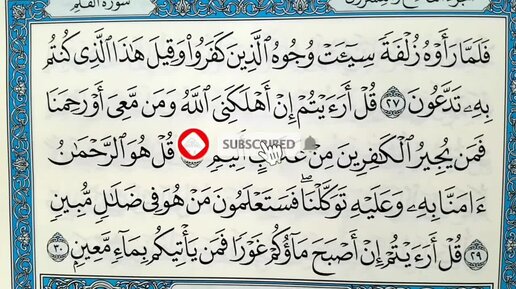 سورة القلم
فَلَمَّا رَأَوْهُ زُلْفَةً سِيٓـَٔتْ وُجُوهُ ٱلَّذِينَ كَفَرُوا۟ وَقِيلَ هَٰذَا ٱلَّذِى كُنتُم
بِهِۦ تَدَّعُونَ ٢٧ قُلْ أَرَءَيْتُمْ إِنْ أَهْلَكَنِىَ ٱللَّهُ وَمَن مَّعِىَ أَوْ رَحِمَنَا
فَمَن يُجِيرُ ٱلْكَٰفِرِينَ مِنْ أَلِيمٍ قُلْ هُوَ ٱلرَّحْمَٰنُ
SUBSCRIBED
ءَامَنَّا بِهِۦ وَعَلَيْهِ تَوَكَّلْنَا ۖ فَسَتَعْلَمُونَ مَنْ هُوَ فِى ضَلَٰلٍ مُّبِينٍ
٢٩ قُلْ أَرَءَيْتُمْ إِنْ أَصْبَحَ مَآؤُكُمْ غَوْرًا فَمَن يَأْتِيكُم بِمَآءٍ مَّعِينٍۭ ٣٠